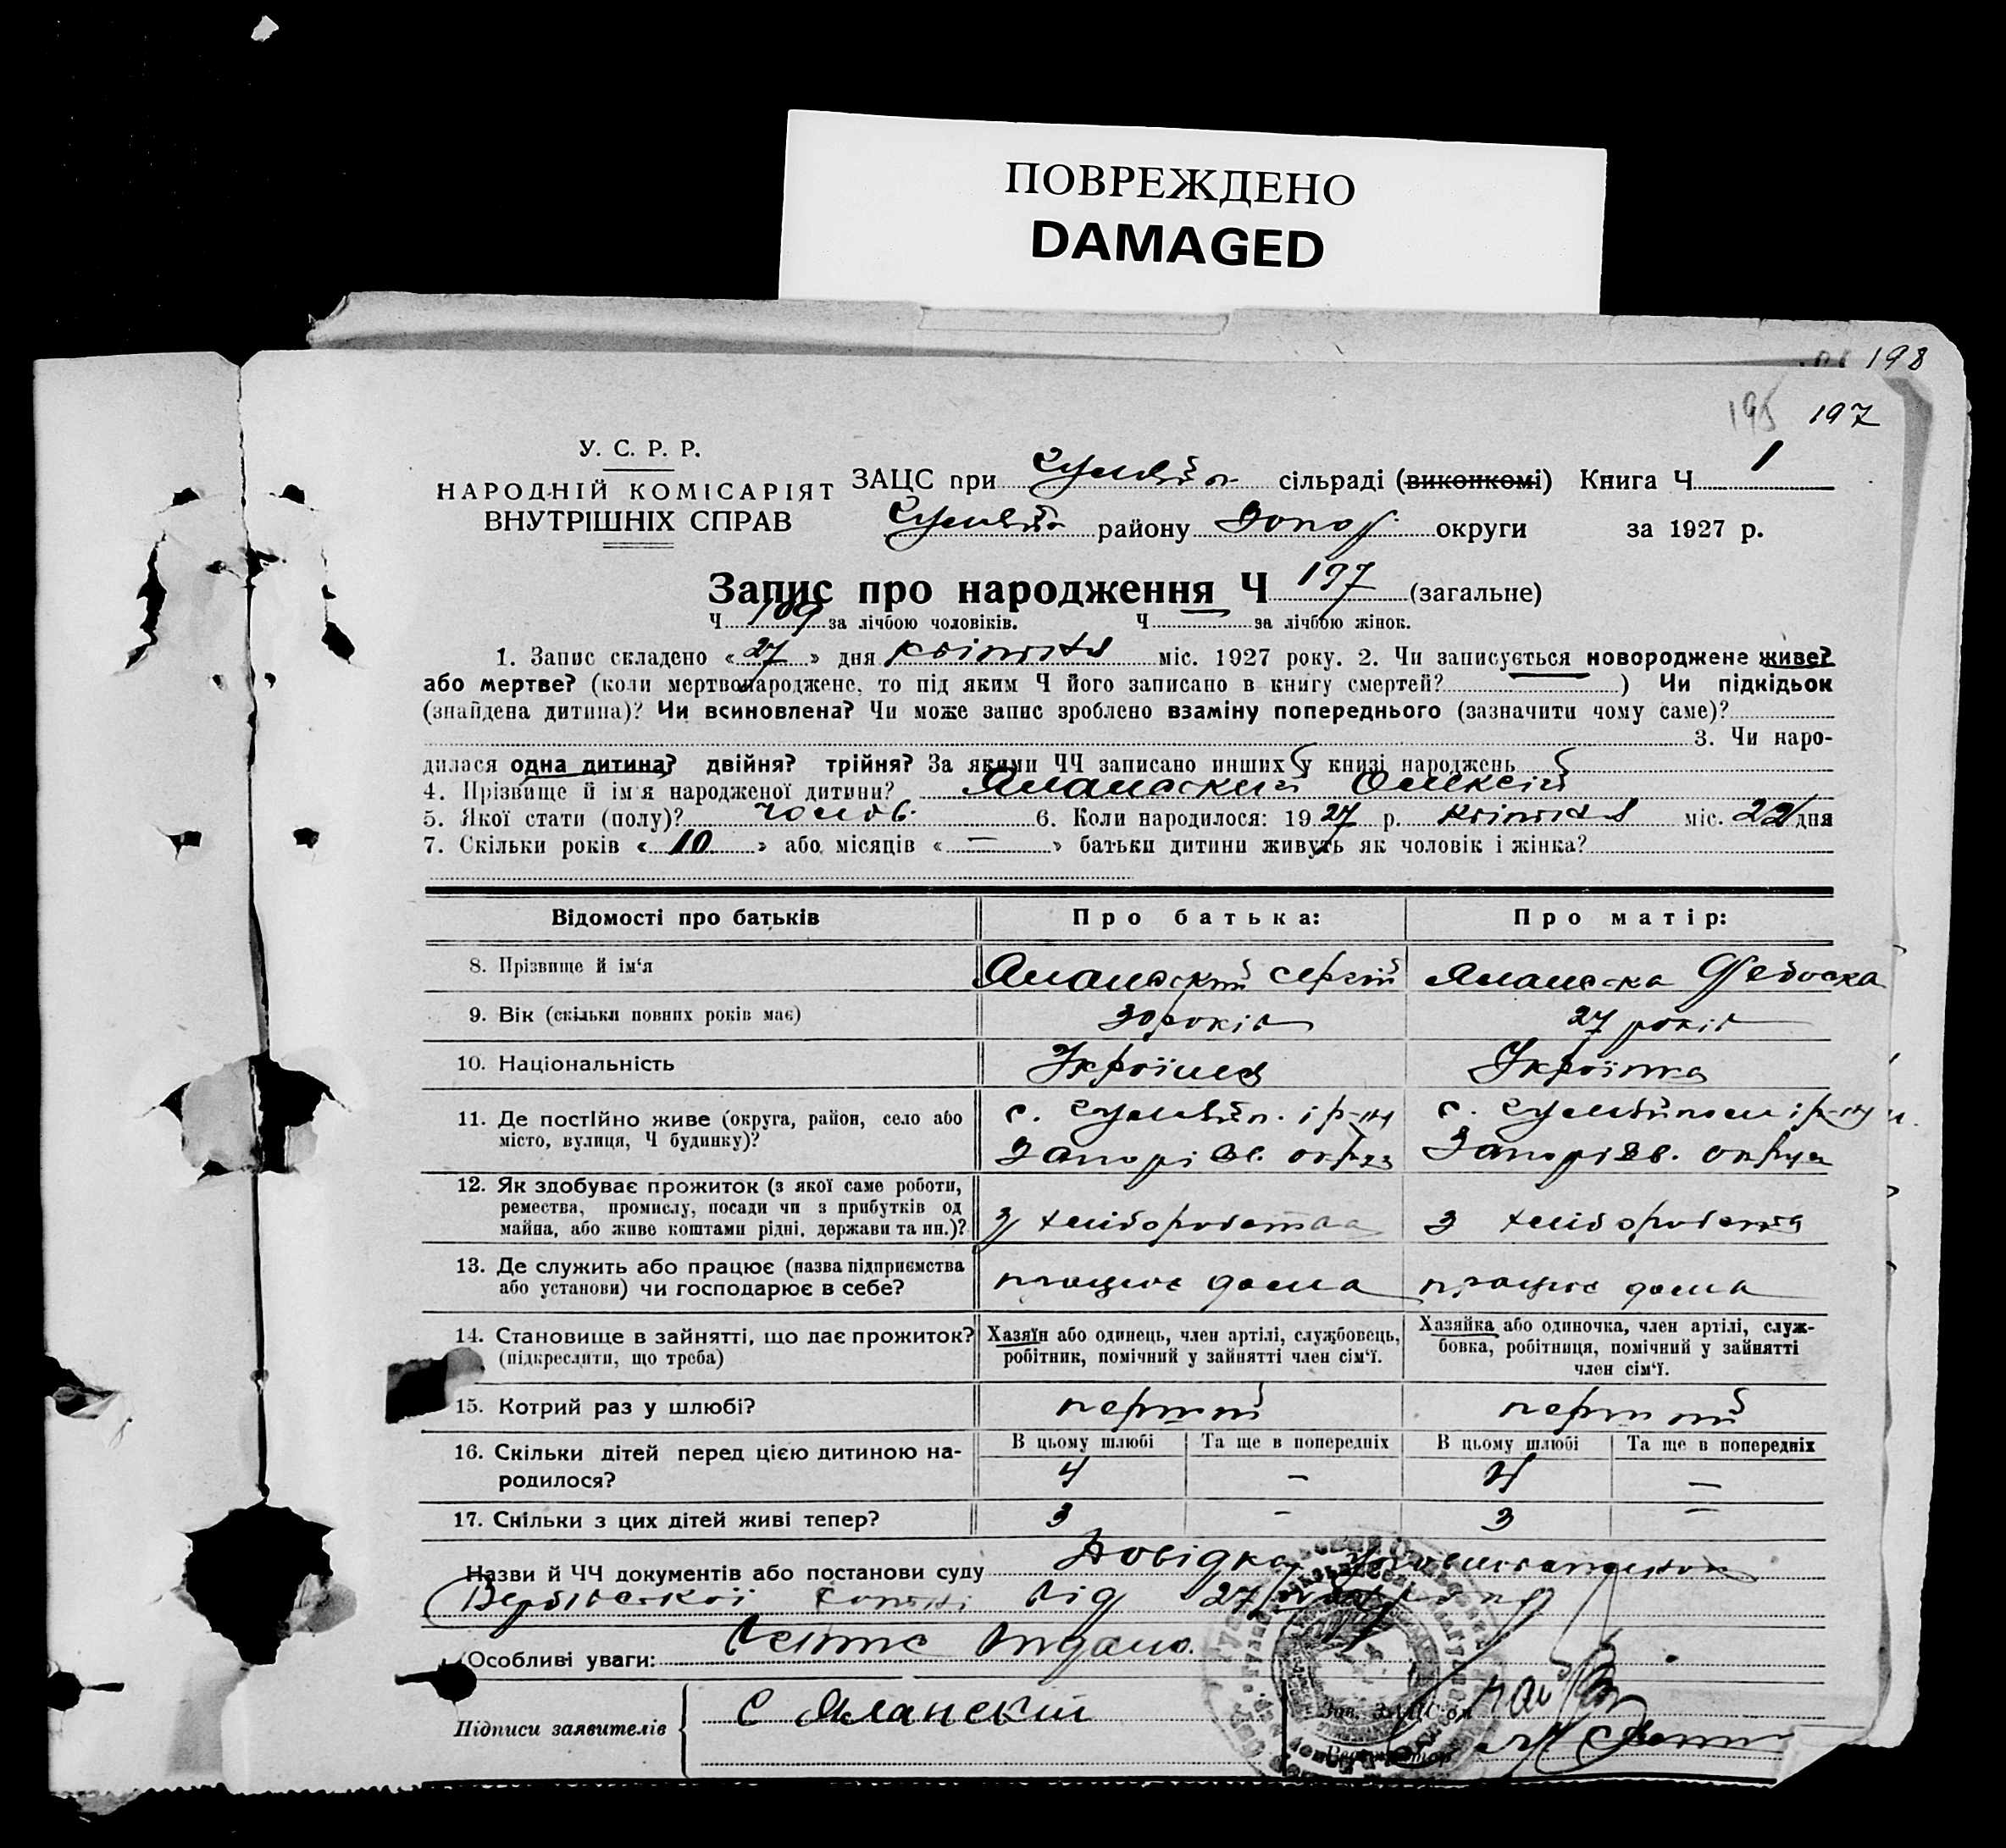 ПОВРЕЖДЕНО
DAMAGED
198
195 197
У. С. Р. Р.
НАРОДНІЙ КОМІСАРІЯТ
ВНУТРІШНІХ СПРАВ
ЗАЦС при сільраді (виконкомі) Книга Ч 1
району Запор. округи за 1927 р.
Запис про народження Ч 197 (загальне)
Ч 109 за лічбою чоловіків. Ч за лічбою жінок.
1. Запис складено « 27 » дня квітня міс. 1927 року. 2. Чи записується новороджене живе?
або мертве? (коли мертвонароджене, то під яким Ч його записано в книгу смертей? ) Чи підкідьок
(знайдена дитина)? Чи всиновлена? Чи може запис зроблено взаміну попереднього (зазначити чому саме)?
3. Чи наро-
дилася одна дитина? двійня? трійня? За якими ЧЧ записано инших у книзі народжень
4. Прізвище й ім'я народженої дитини? Яланський Олексій
5. Якої стати (полу)? чолов. 6. Коли народилося: 1927 р. квітня міс. 22 дня
7. Скільки років « 10 » або місяців « — » батьки дитини живуть як чоловік і жінка?
Відомості про батьків Про батька: Про матір:
8. Прізвище й ім'я Яланський Сергій Яланська Федоска
9. Вік (скільки повних років має) 30 років 27 років
10. Національність Українец Українка
11. Де постійно живе (округа, район, село або
місто, вулиця, Ч будинку)?
с. і р-ну с. і р-ну
Запоріжв. округи Запоріжв. округи
12. Як здобуває прожиток (з якої саме роботи,
ремества, промислу, посади чи з прибутків од
майна, або живе коштами рідні, держави та ин.)?
з хліборобства з хліборобства
13. Де служить або працює (назва підприємства
або установи) чи господарює в себе?
працює дома працює дома
14. Становище в зайнятті, що дає прожиток?
(підкреслити, що треба)
Хазяїн або одинець, член артілі, службовець,
робітник, помічний у зайнятті член сім'ї.
Хазяйка або одиночка, член артілі, служ-
бовка, робітниця, помічний у зайнятті
член сім'ї.
15. Котрий раз у шлюбі? перший перший
В цьому шлюбі Та ще в попередніх В цьому шлюбі Та ще в попередніх
16. Скільки дітей перед цією дитиною на-
родилося?
4 — 4 —
17. Скільки з цих дітей живі тепер? 3 — 3 —
Назви й ЧЧ документів або постанови суду Довідка
від 27
Особливі уваги: видано.
Підписи заявителів С Яланский
Зав. ЗАЦС'ом